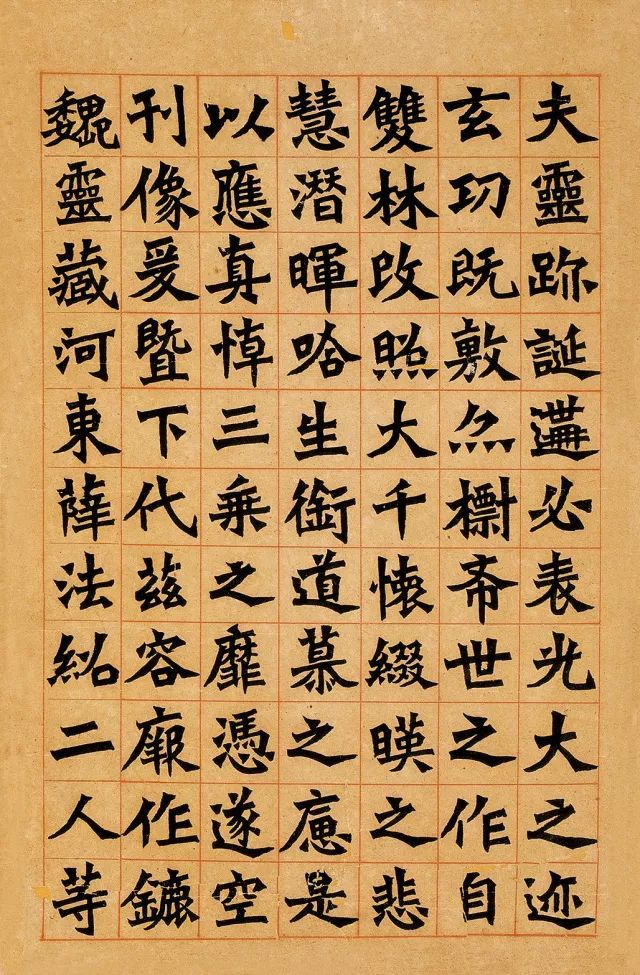 夫靈跡誕遘必表光大之迹
玄功既敷亦標希世之作自
雙林改照大千懷綴暎之悲
慧潛暉哈生銜道慕之是
以應真悼三乘之靡憑遂空
刊像爰暨下代茲容廓作鏕
魏靈藏河東薛法紹二人等